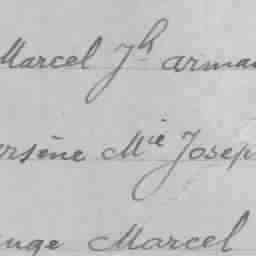 Marcel Jh arman
arsène Mie Josep
ange Marcel